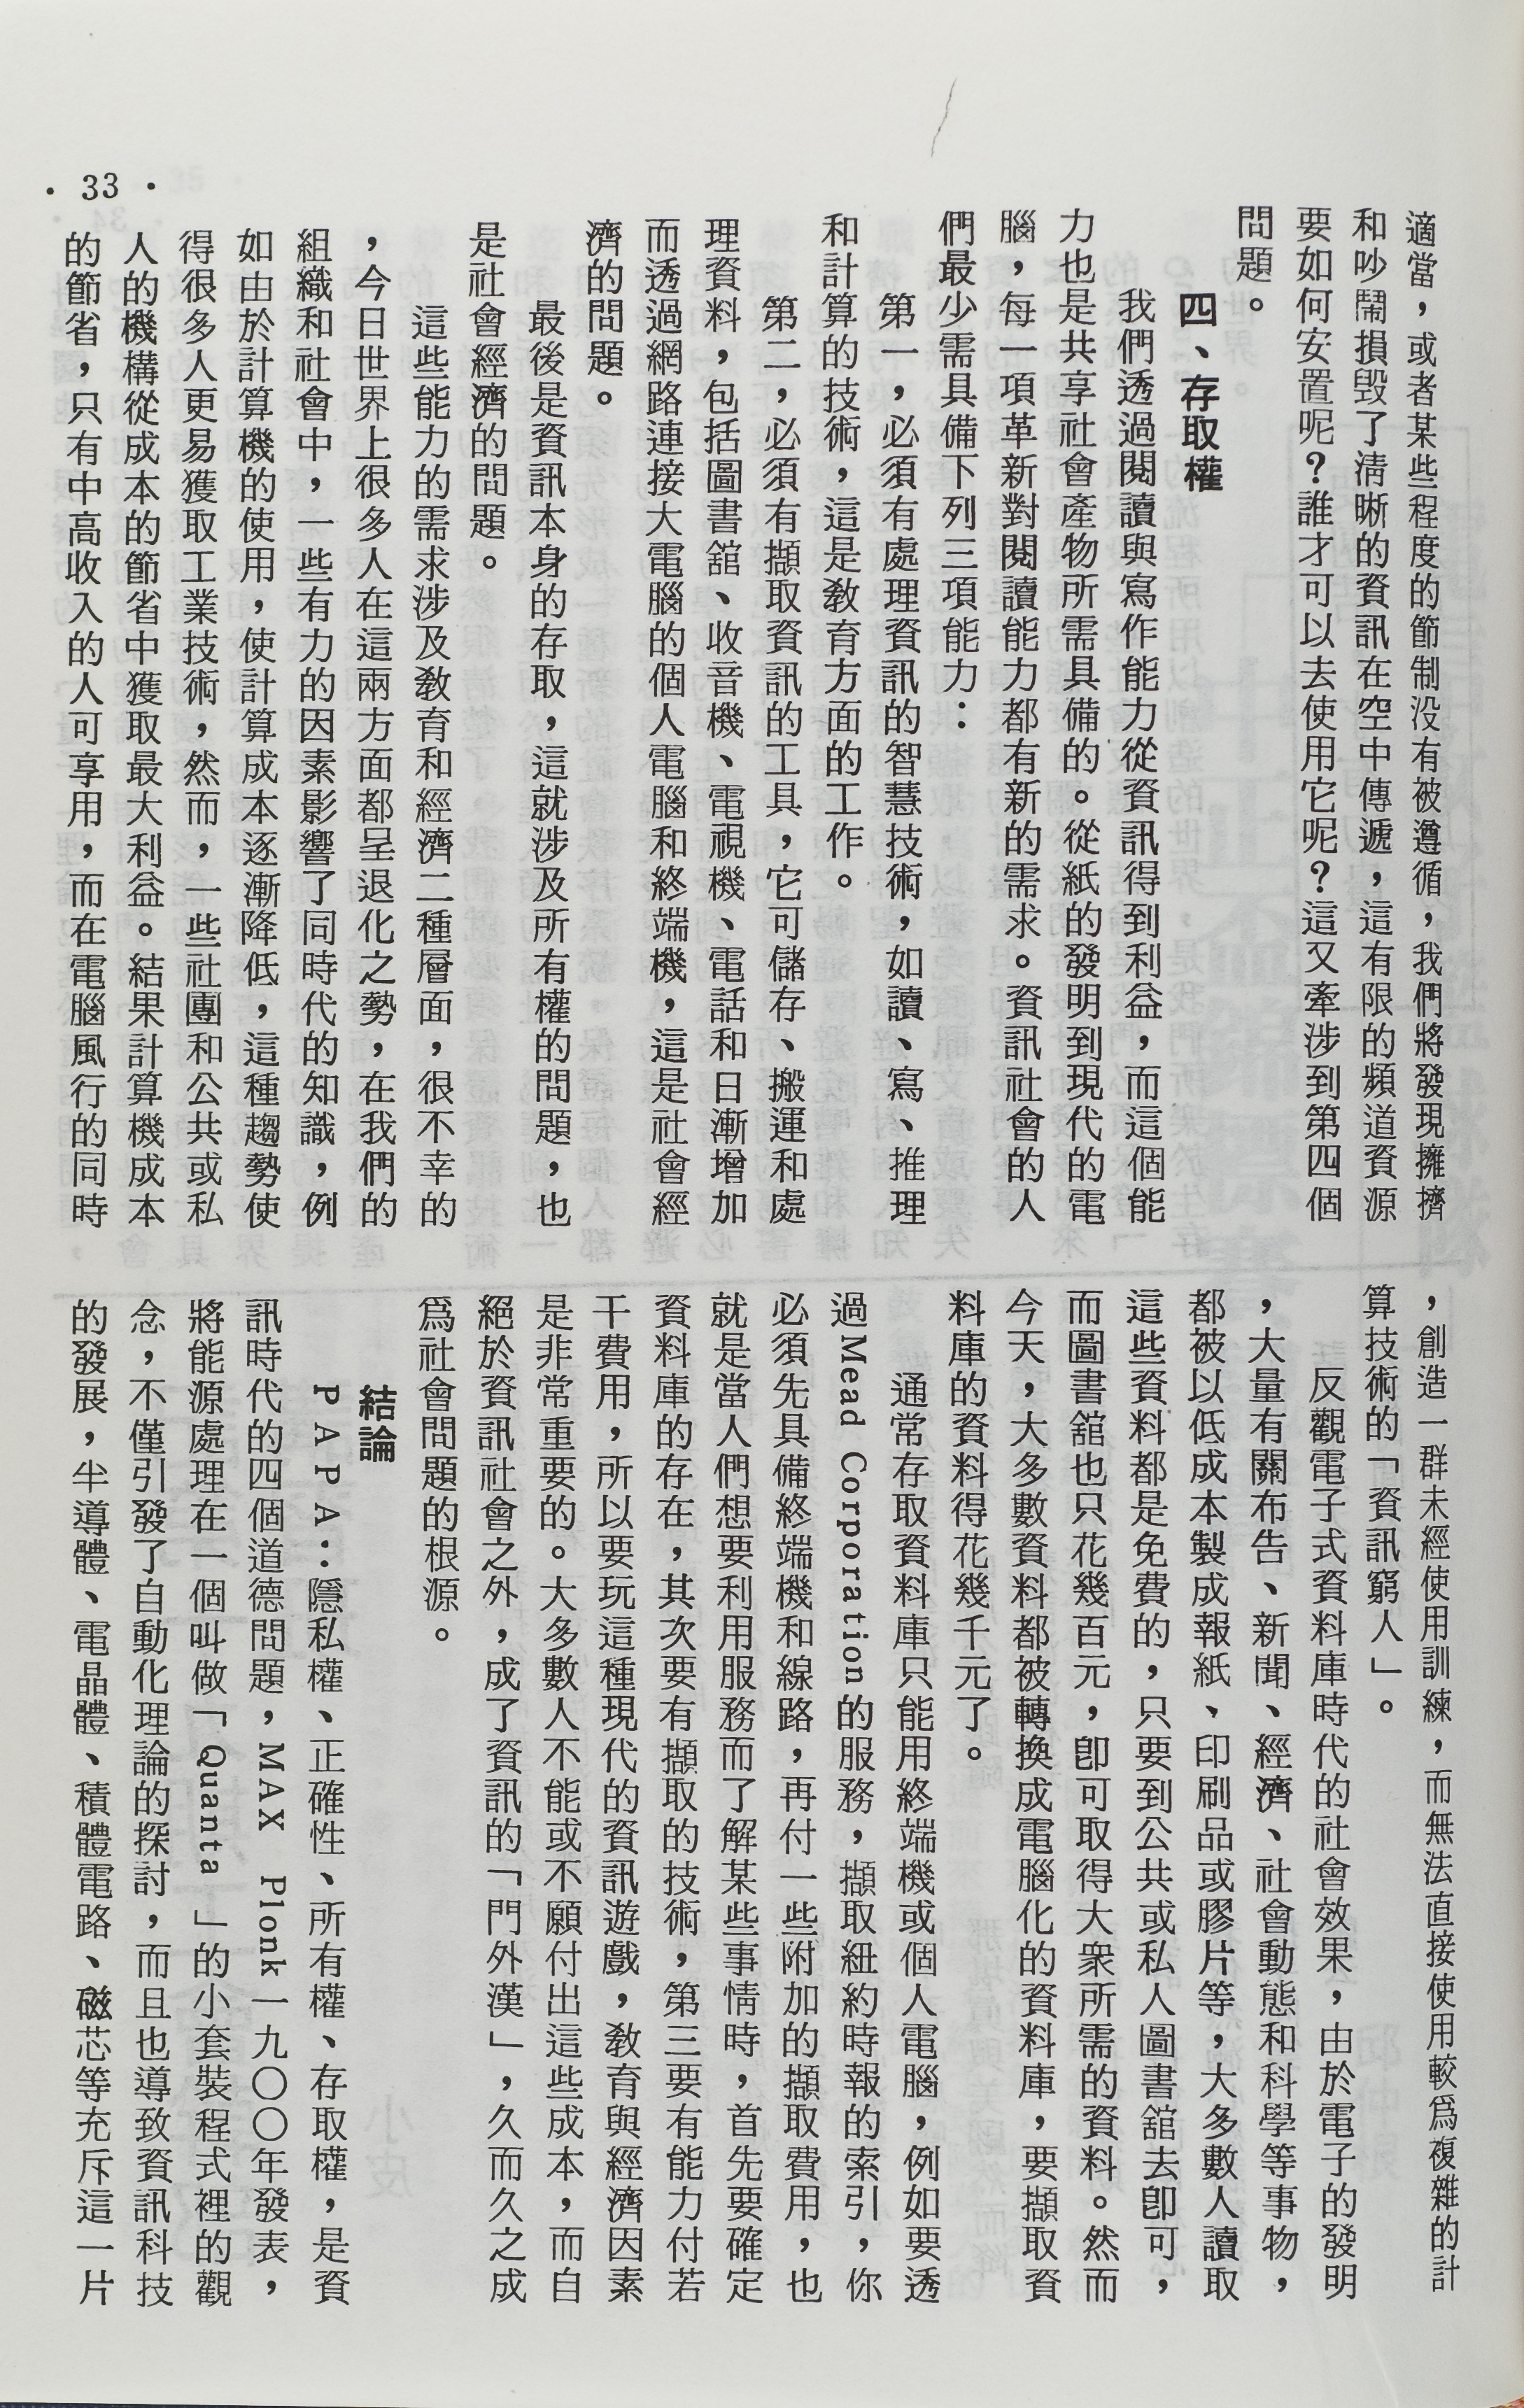 適當，或者某些程度的節制没有被遵循，我們將發現擁擠
和吵鬧損毀了淸晰的資訊在空中傳遞，這有限的頻道資源
要如何安置呢？誰才可以去使用它呢？這又牽涉到第四個
問題。
四、存取權
我們透過閱讀與寫作能力從資訊得到利益，而這個能
力也是共享社會產物所需具備的。從紙的發明到現代的電
腦，每一項革新對閱讀能力都有新的需求。資訊社會的人
們最少需具備下列三項能力：
第一，必須有處理資訊的智慧技術，如讀、寫、推理
和計算的技術，這是敎育方面的工作。
第二，必須有擷取資訊的工具，它可儲存、搬運和處
理資料，包括圖書舘、收音機、電視機、電話和日漸增加
而透過網路連接大電腦的個人電腦和終端機，這是社會經
濟的問題。
最後是資訊本身的存取，這就涉及所有權的問題，也
是社會經濟的問題。
這些能力的需求涉及敎育和經濟二種層面，很不幸的
，今日世界上很多人在這兩方面都呈退化之勢，在我們的
組織和社會中，一些有力的因素影響了同時代的知識，例
如由於計算機的使用，使計算成本逐漸降低，這種趨勢使
得很多人更易獲取工業技術，然而，一些社團和公共或私
人的機構從成本的節省中獲取最大利益。結果計算機成本
的節省，只有中高收入的人可享用，而在電腦風行的同時
，創造一群未經使用訓練，而無法直接使用較爲複雜的計
算技術的「資訊窮人」。
反觀電子式資料庫時代的社會效果，由於電子的發明
，大量有關布告、新聞、經濟、社會動態和科學等事物，
都被以低成本製成報紙、印刷品或膠片等，大多數人讀取
這些資料都是免費的，只要到公共或私人圖書舘去卽可，
而圖書舘也只花幾百元，卽可取得大衆所需的資料。然而
今天，大多數資料都被轉換成電腦化的資料庫，要擷取資
料庫的資料得花幾千元了。
通常存取資料庫只能用終端機或個人電腦，例如要透
過Mead Corporation的服務，擷取紐約時報的索引，你
必須先具備終端機和線路，再付一些附加的擷取費用，也
就是當人們想要利用服務而了解某些事情時，首先要確定
資料庫的存在，其次要有擷取的技術，第三要有能力付若
干費用，所以要玩這種現代的資訊遊戲，敎育與經濟因素
是非常重要的。大多數人不能或不願付出這些成本，而自
絕於資訊社會之外，成了資訊的「門外漢」，久而久之成
爲社會問題的根源。
結論
ＰＡＰＡ：隱私權、正確性、所有權、存取權，是資
訊時代的四個道德問題，MAX Plonk一九〇〇年發表，
將能源處理在一個叫做「Quanta」的小套裝程式裡的觀
念，不僅引發了自動化理論的探討，而且也導致資訊科技
的發展，半導體、電晶體、積體電路、磁芯等充斥這一片
• 33 •